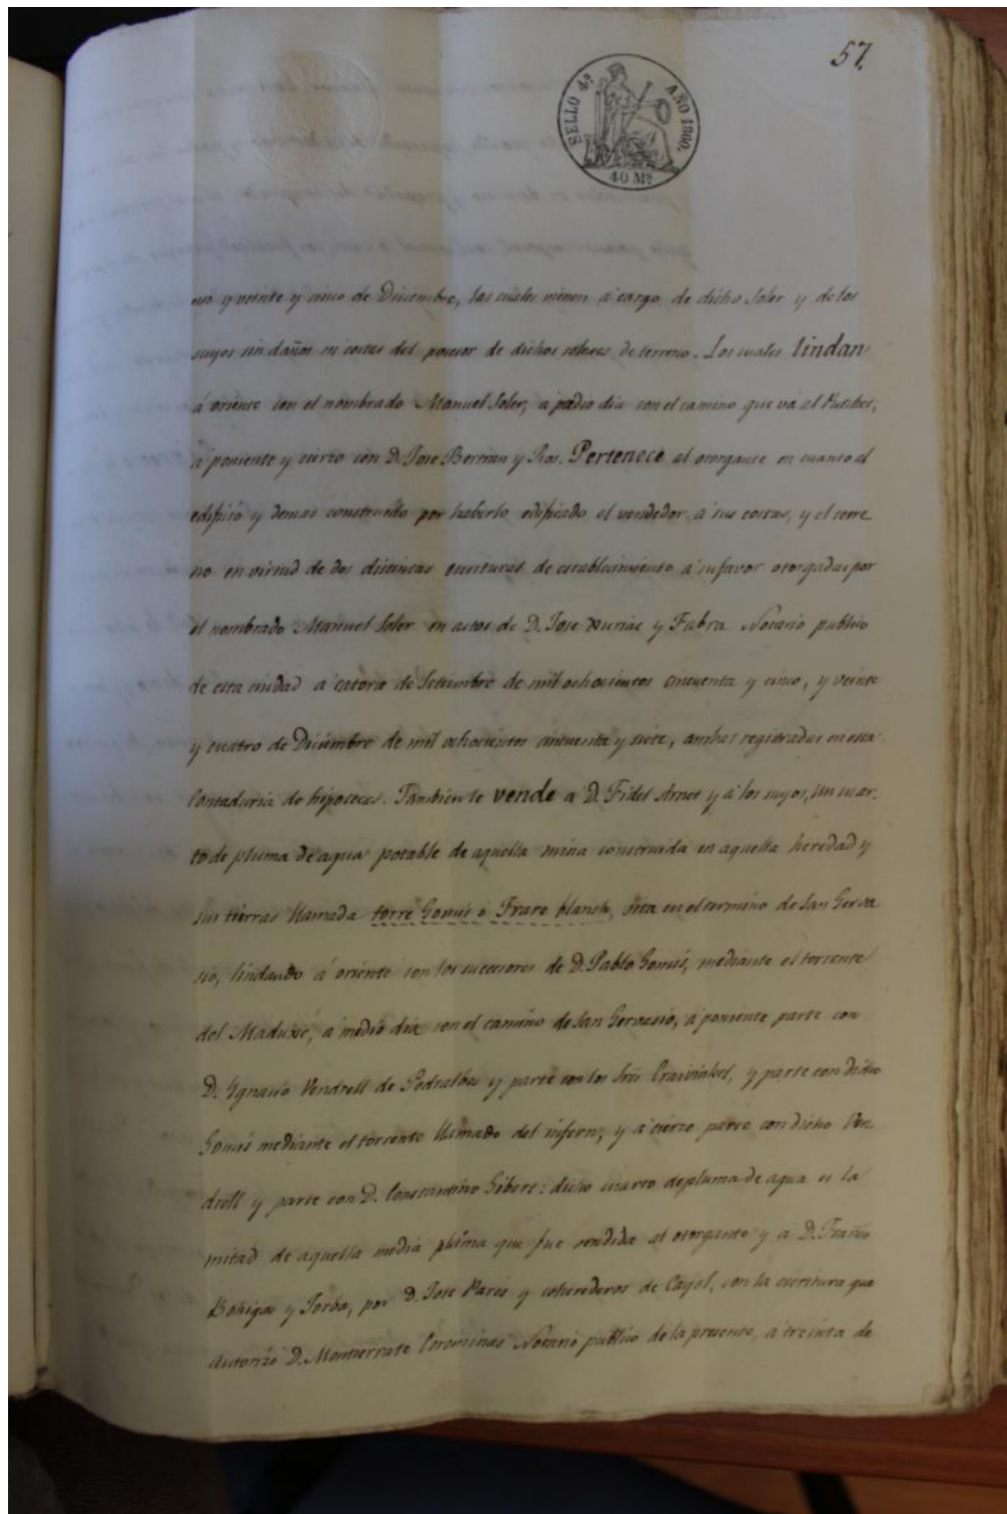 57.
SELLO 4º AÑO 1860.
40 Ms
y veinte y cinco de Diciembre, las cuales vienen á cargo de dicho Soler y de los
suyos sin daños ni costas del posesor de dichos solares de terreno. Los cuales lindan
á oriente con el nombrado Manuel Soler, a medio dia con el camino que vá al Putchet,
á poniente y cierzo con D. Jose Bertran y Ros. Pertenece al otorgante en cuanto al
edificio y demas construido por haberlo edificado el vendedor a sus costas, y el terre
no en virtud de dos distintas escrituras de establecimiento á su favor otorgadas por
el nombrado Manuel Soler en actos de D. Jose y Fabra Notario publico
de esta ciudad a catorce de Setiembre de mil ochocientos cincuenta y cinco, y veinte
y cuatro de Diciembre de mil ochocientos cincuenta y siete, ambas registradas en esta
Contaduria de hipotecas. Tambien le vende a D. Fidel Arnet y á los suyos, un cuar
to de pluma de agua potable de aquella mina construida en aquella heredad y
sus tierras llamada torre Gomis ó Frare blanch, sita en el termino de San Gerva
sio, lindando á oriente con los sucesores de D. Pablo Gomis, mediante el torrente
del Maduxé, á medio dia con el camino de San Gervasio, á poniente parte con
D. Ignacio Vendrell de Pedralbes y parte con los Sres Craivinkel, y parte con dicho
Gomis mediante el torrente llamado del infern; y á cierzo parte con dicho Ven
drell y parte con D. Constantino Gibert: dicho cuarto de pluma de agua es la
mitad de aquella media pluma que fue vendida al otorgante y á D. Franco
Bohigas y Jorba, por D. Jose Parés y coherederos de Cayol, con la escritura que
autorizó D. Montserrate Corominas Notario publico de la presente, a treinta de